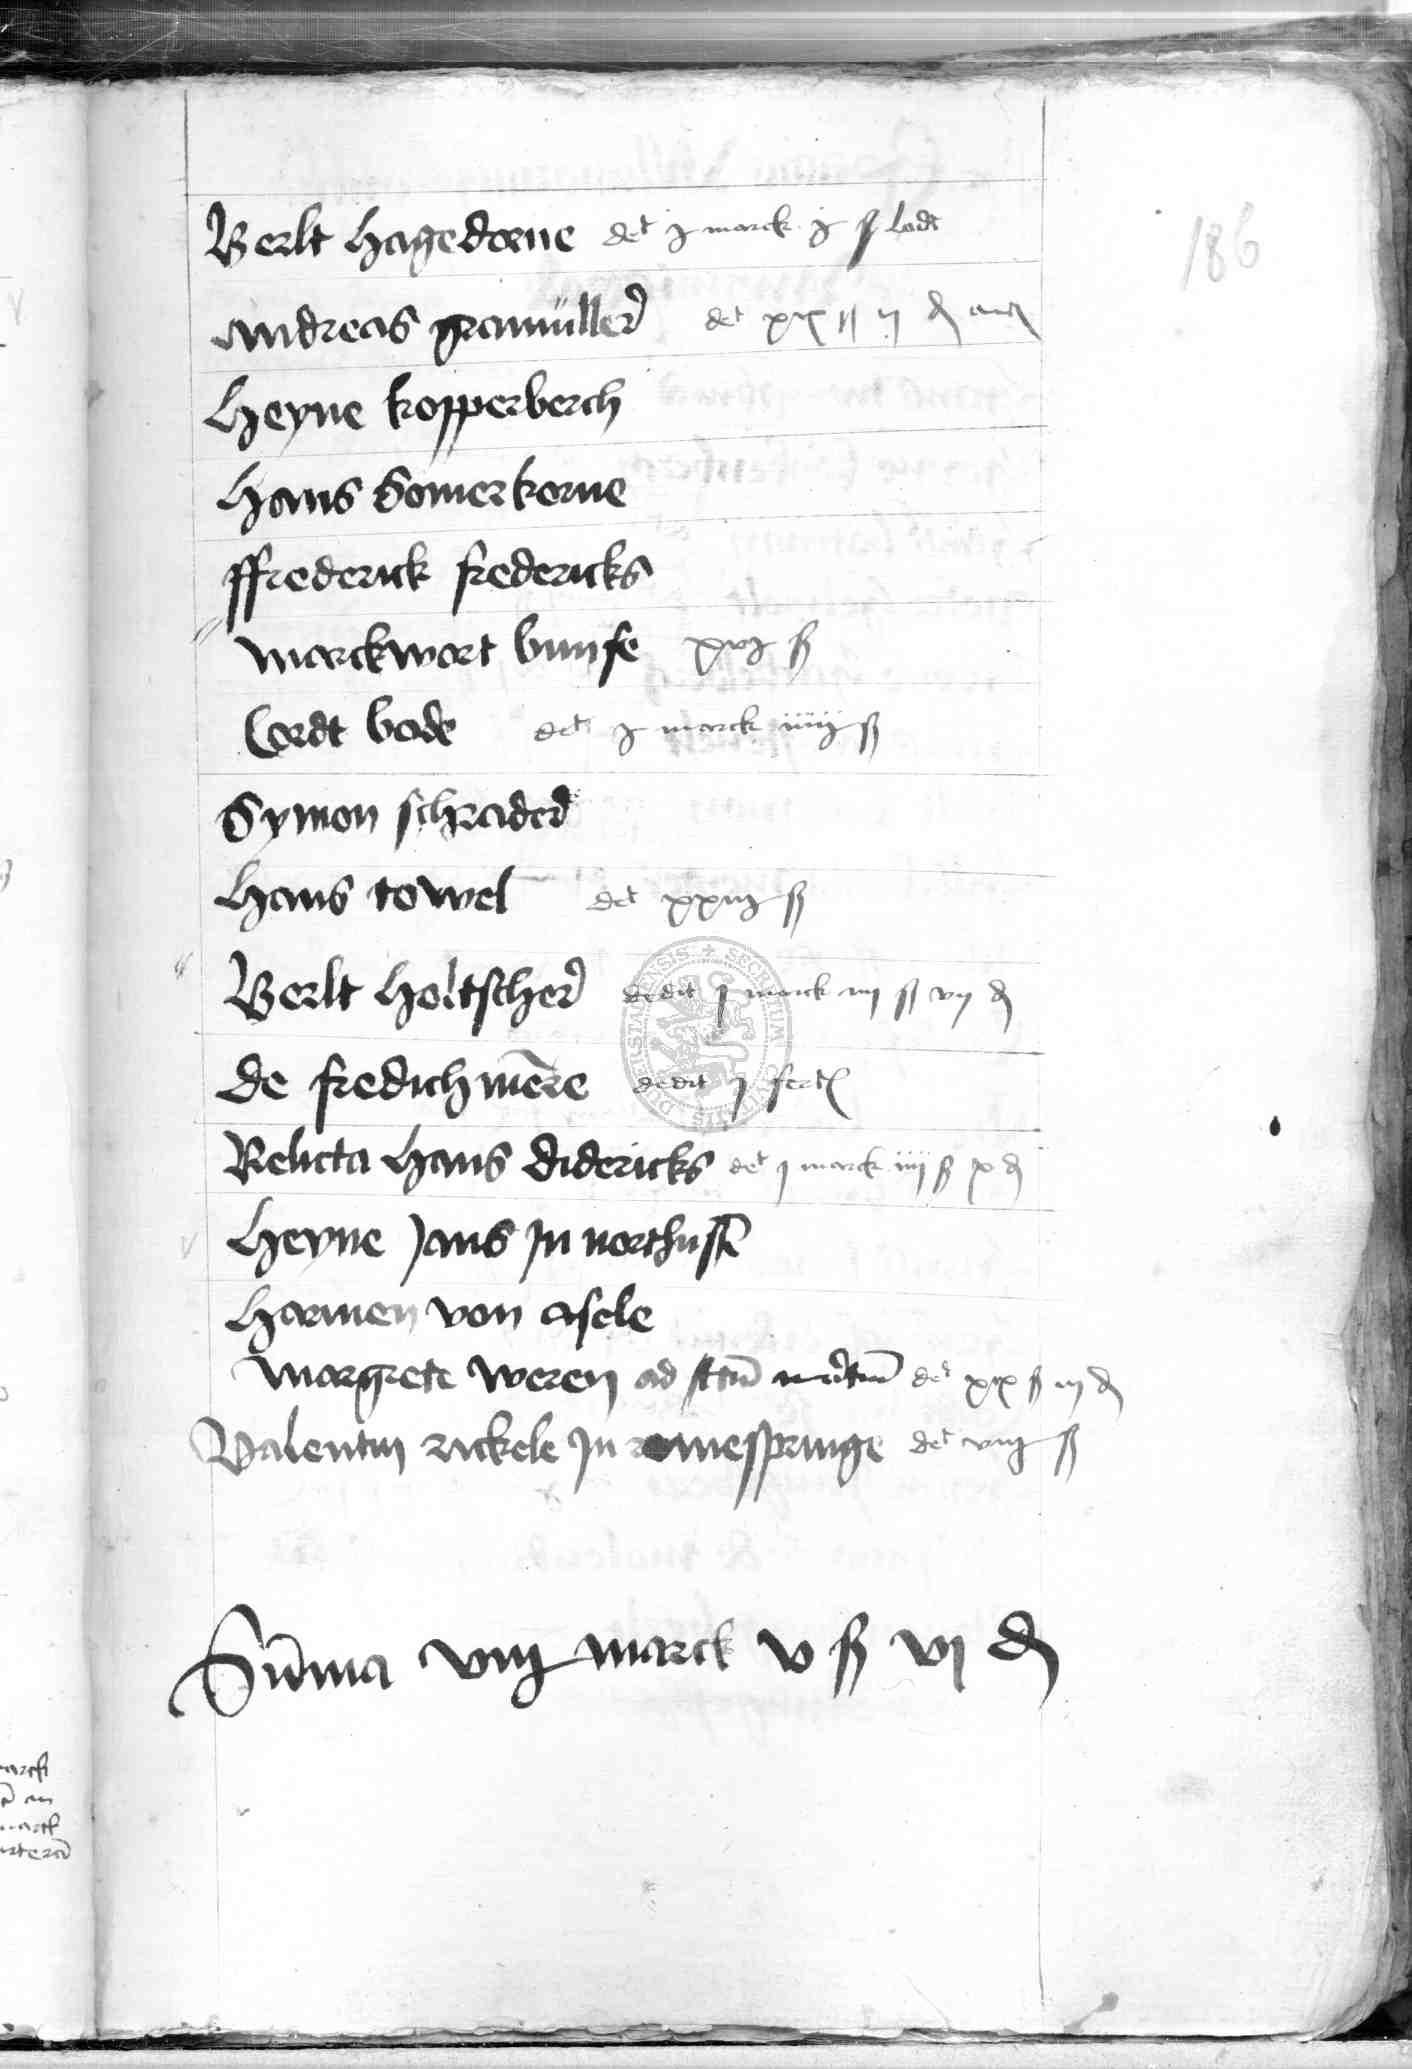 186
Berlt hagedorne det j marck j ß lodt
Andreas gramüller det xix ß ij d
Heyne kopperberch
Hans Somerkorne
ffrederick fredericks
Marckwort bunse xvj ß
Cordt bode det j marck iiiij ß
Symon schrader
Hans towel det xxiij ß
Berlt holtscher dedit j marck iiij ß vij d
De fredichmere dedit j fert
Relicta Hans didericks det j marck iiij ß x d
Heyne Jans Jn northusen
Harmen von Asele
Margrete weren ad det xix ß iij d
Valentin rickele Jn romespringe det viij ß
Suma viij marck v ß vj d